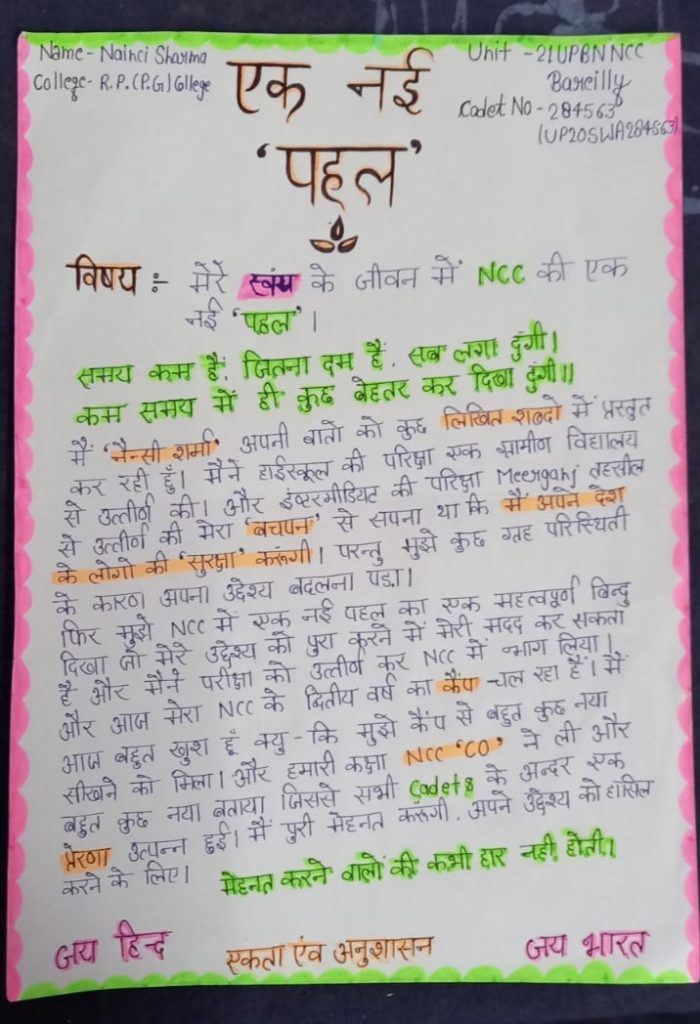 Name - Nainci Sharma
College - R.P.(P.G) College
Unit - 21UPBN NCC
Bareilly
Cadet No - 284563
(UP20SWA284563)
एक नई
'पहल'
विषय :- मेरे स्वंय के जीवन में NCC की एक
नई 'पहल'।
समय कम हैं, जितना दम हैं, सब लगा दुंगी।
कम समय में ही कुछ बेहतर कर दिखा दुंगी॥
मैं 'नैन्सी शर्मा' अपनी बातो को कुछ लिखित शब्दो में प्रस्तुत
कर रही हुँ। मैने हाईस्कूल की परिक्षा एक ग्रामीण विद्यालय
से उत्तीर्ण की। और इंण्टरमीडियट की परिक्षा Meerganj तहसील
से उत्तीर्ण की मेरा 'बचपन' से सपना था कि मैं अपने देश
के लोगो की 'सुरक्षा' करूंगी। परन्तु मुझे कुछ ग्रह परिस्थिती
के कारण अपना उद्देश्य बदलना पड़ा।
फिर मुझे NCC में एक नई पहल का एक महत्वपूर्ण बिन्दु
दिखा जो मेरे उद्देश्य को पुरा करने में मेरी मदद कर सकता
है और मैनें परीक्षा को उत्तीर्ण कर NCC में भाग लिया।
और आज मेरा NCC के द्वितीय वर्ष का कैंप चल रहा हैं। मैं
आज बहुत खुश हूँ क्यु-कि मुझे कैंप से बहुत कुछ नया
सीखने को मिला। और हमारी कक्षा NCC 'CO' ने ली और
बहुत कुछ नया बताया जिससे सभी Cadets के अन्दर एक
प्रेरणा उत्पन्न हुई। मैं पुरी मेहनत करूंगी, अपने उद्देश्य को हासिल
करने के लिए।
मेहनत करने वालों की कभी हार नही होती।
जय हिन्द
एकता एंव अनुशासन
जय भारत